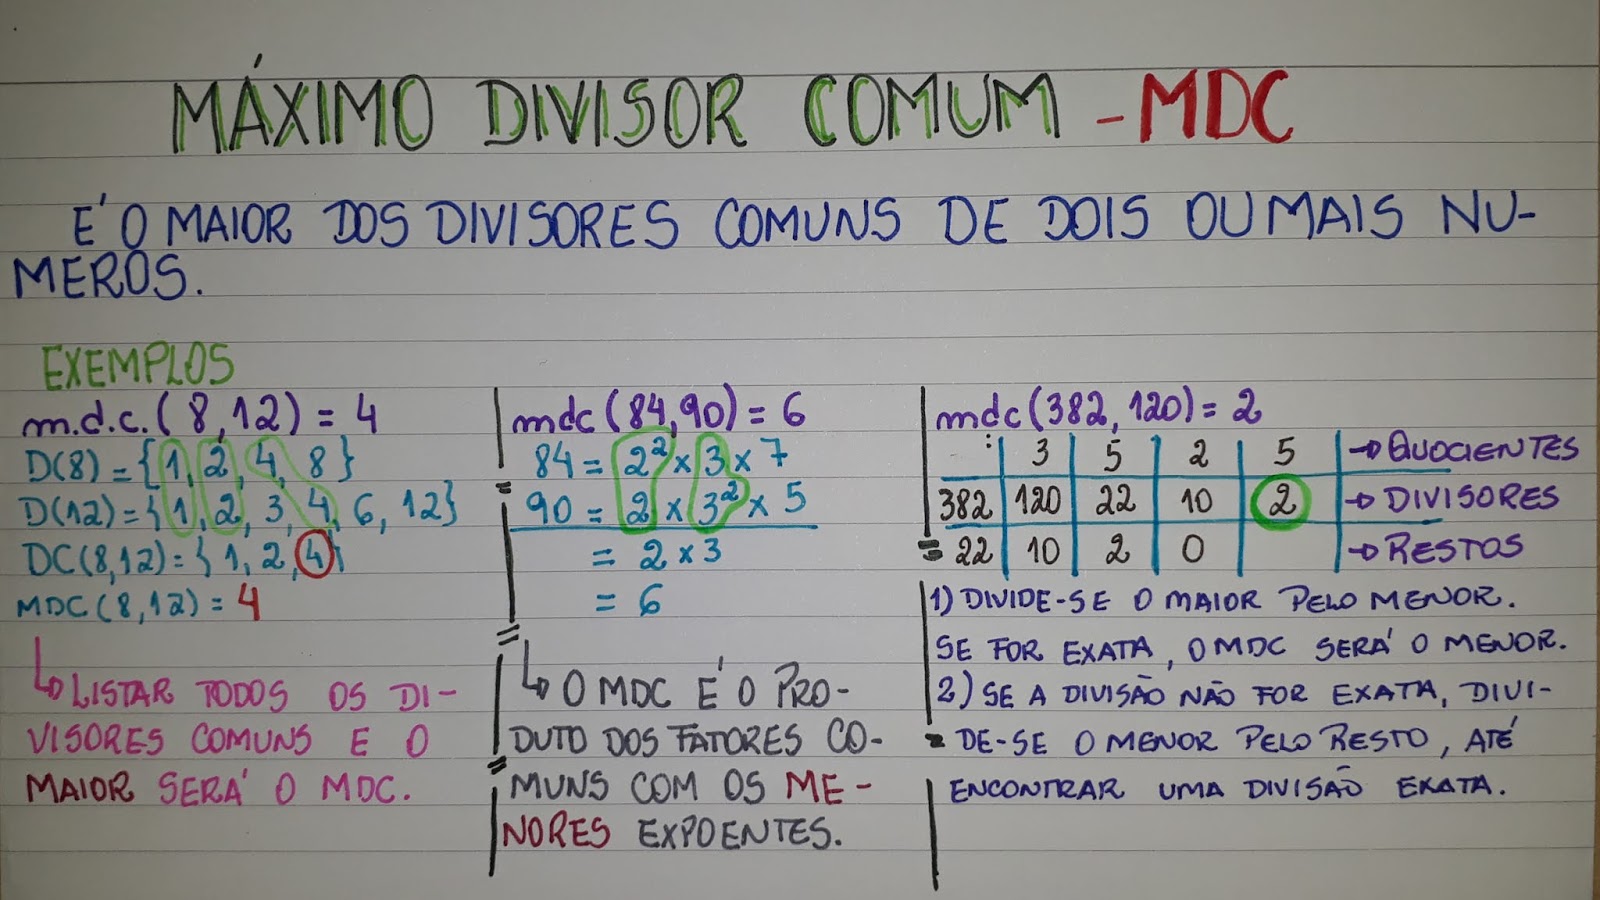 MÁXIMO DIVISOR COMUM - MDC
É O MAIOR DOS DIVISORES COMUNS DE DOIS OU MAIS NU-
MEROS.
EXEMPLOS
m.d.c.(8,12) = 4
D(8) = {1, 2, 4, 8}
D(12) = {1, 2, 3, 4, 6, 12}
DC(8,12) = {1, 2, 4}
MDC(8,12) = 4
↳ LISTAR TODOS OS DI-
VISORES COMUNS E O
MAIOR SERÁ O MDC.
mdc(84,90) = 6
84 = 2² x 3 x 7
90 = 2 x 3² x 5
= 2 x 3
= 6
↳ O MDC É O PRO-
DUTO DOS FATORES CO-
MUNS COM OS ME-
NORES EXPOENTES.
mdc(382, 120) = 2
: 3 5 2 5 → QUOCIENTES
382 120 22 10 2 → DIVISORES
= 22 10 2 0 → RESTOS
1) DIVIDE-SE O MAIOR PELO MENOR.
SE FOR EXATA, O MDC SERÁ O MENOR.
2) SE A DIVISÃO NÃO FOR EXATA, DIVI-
DE-SE O MENOR PELO RESTO, ATÉ
ENCONTRAR UMA DIVISÃO EXATA.